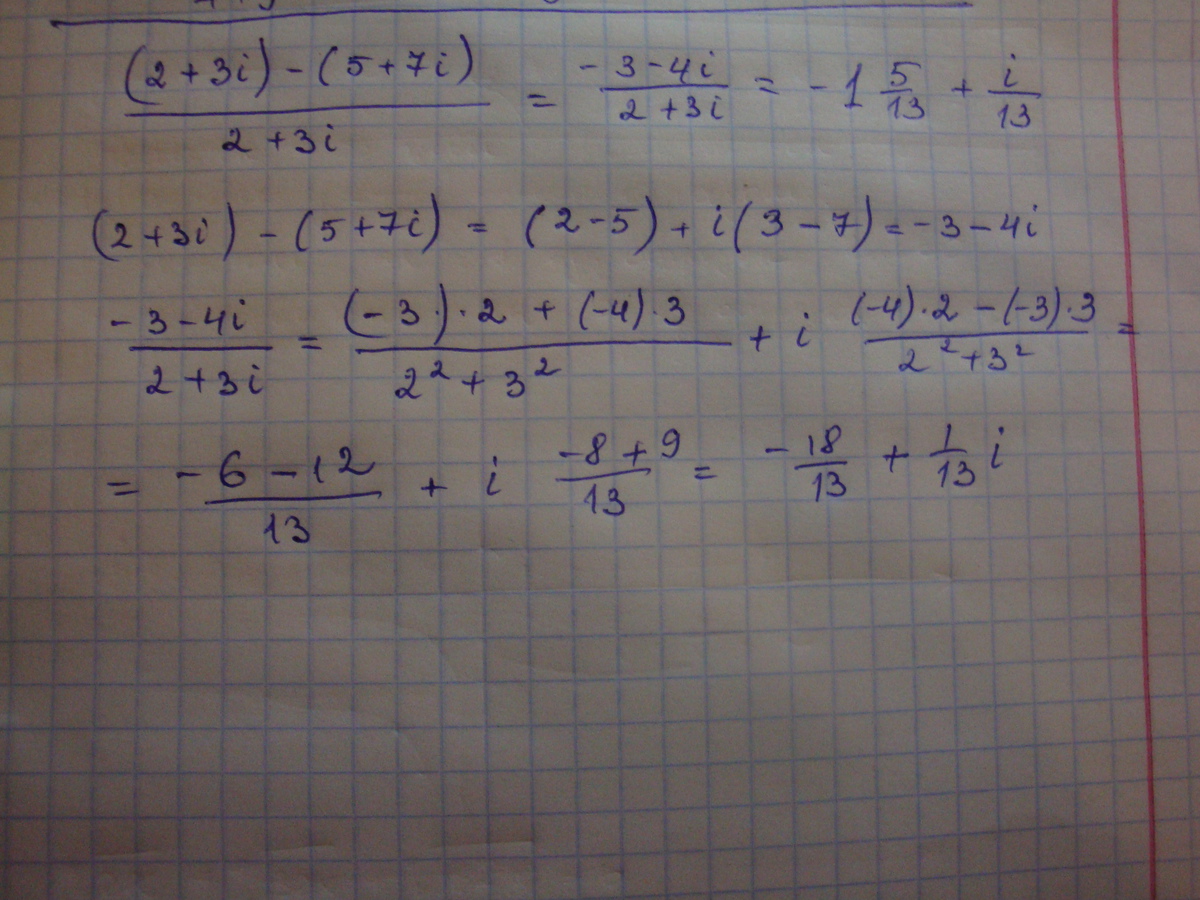 ((2+3i)-(5+7i))/(2+3i) = (-3-4i)/(2+3i) = -1 5/13 + i/13
(2+3i)-(5+7i) = (2-5)+i(3-7)=-3-4i
(-3-4i)/(2+3i) = ((-3)·2+(-4)·3)/(2²+3²) + i ((-4)·2-(-3)·3)/(2²+3²) =
= (-6-12)/13 + i (-8+9)/13 = -18/13 + 1/13 i